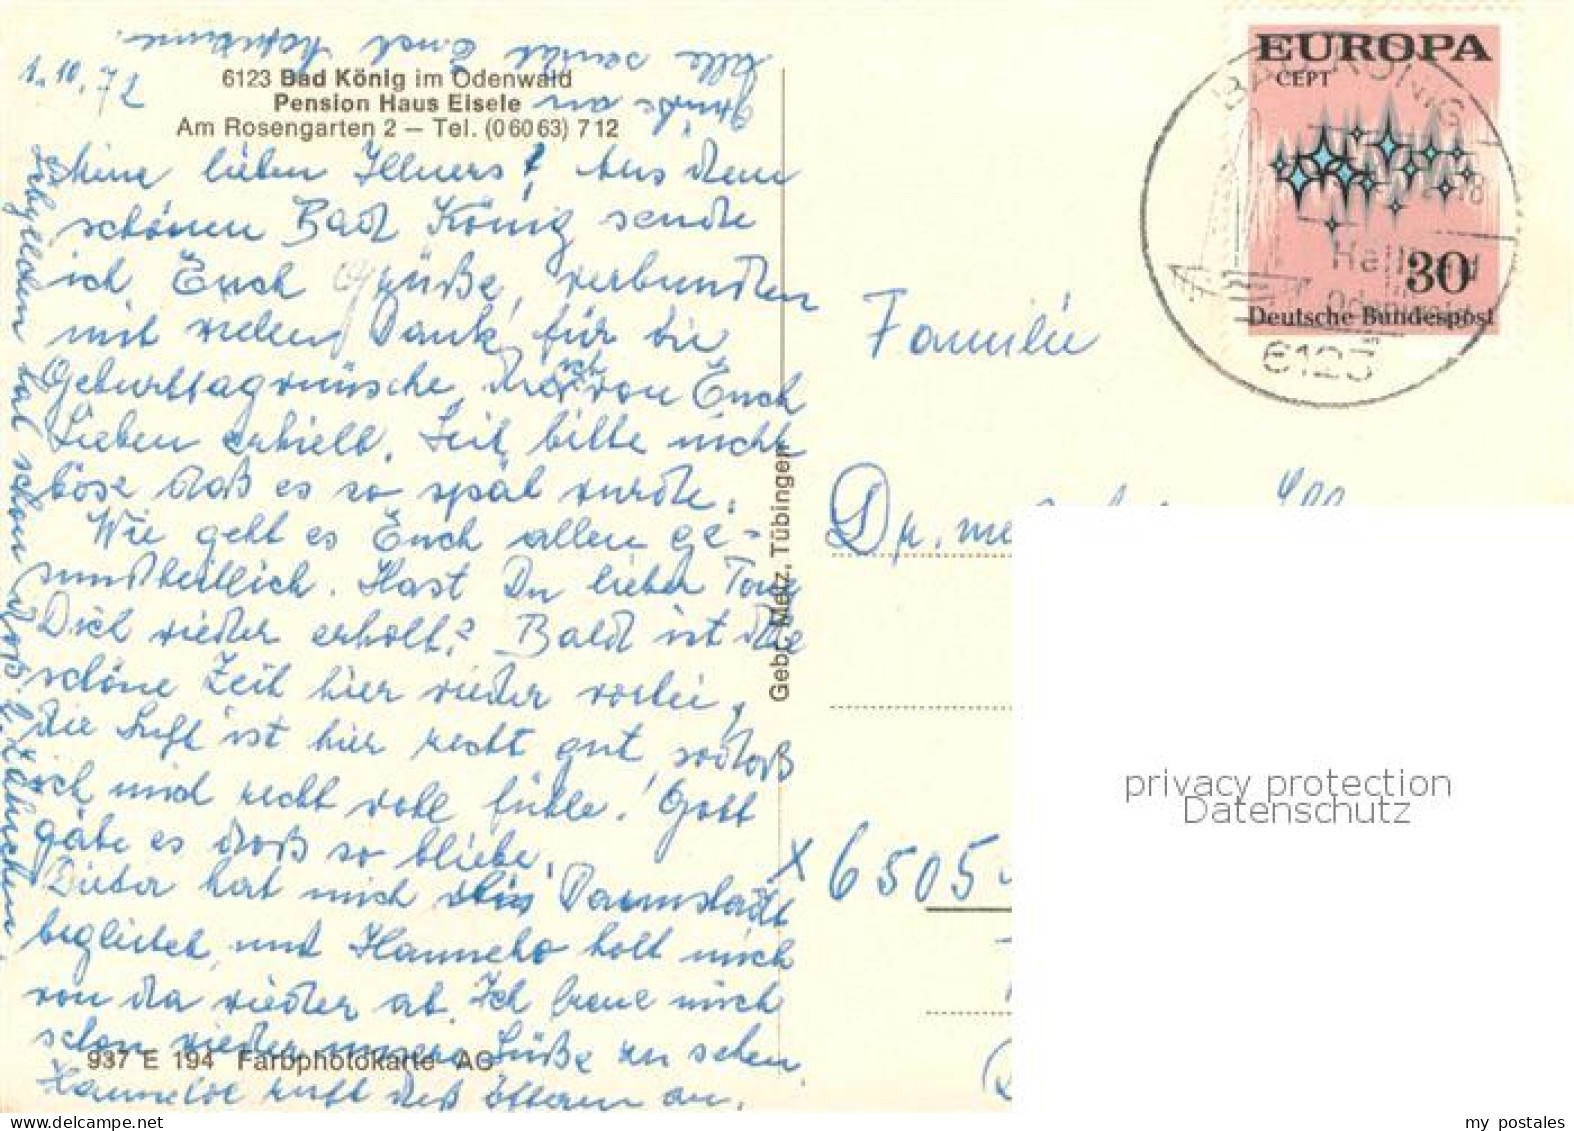 1.10.72
6123 Bad König im Odenwald
Pension Haus Eisele
Am Rosengarten 2 — Tel. (06063) 712
Meine lieben Illners! Aus dem
schönen Bad König sende
ich Euch Grüße, verbunden
mit vielen Dank für die
Geburtstagwünsche, die ich von Euch
Lieben erhielt. Seit bitte nicht
böse daß es so spät wurde.
Wie geht es Euch allen ge-
sundheitlich. Hast Du lieber
Dich wieder erholt? Bald ist die
schöne Zeit hier wieder vorbei,
die Luft ist hier recht gut, sodaß
ich mich recht wohl fühle. Gott
gäbe es daß so bliebe.
Dieter hat mich bis Darmstadt
begleitet und Hannelo holt mich
von da wieder ab. Ich freue mich
schon wieder unsere Süße zu sehen.
Hannelor ruft des öfteren an.
schon daß 2 Zähnchen.
Grüße an
alle sendet Euch
937 E 194 Farbphotokarte AG
Gebr. Metz, Tübingen
EUROPA
CEPT
30
Deutsche Bundespost
BAD KÖNIG
6123
Familie
Dr. med.
x 6505
privacy protection
Datenschutz
my postales